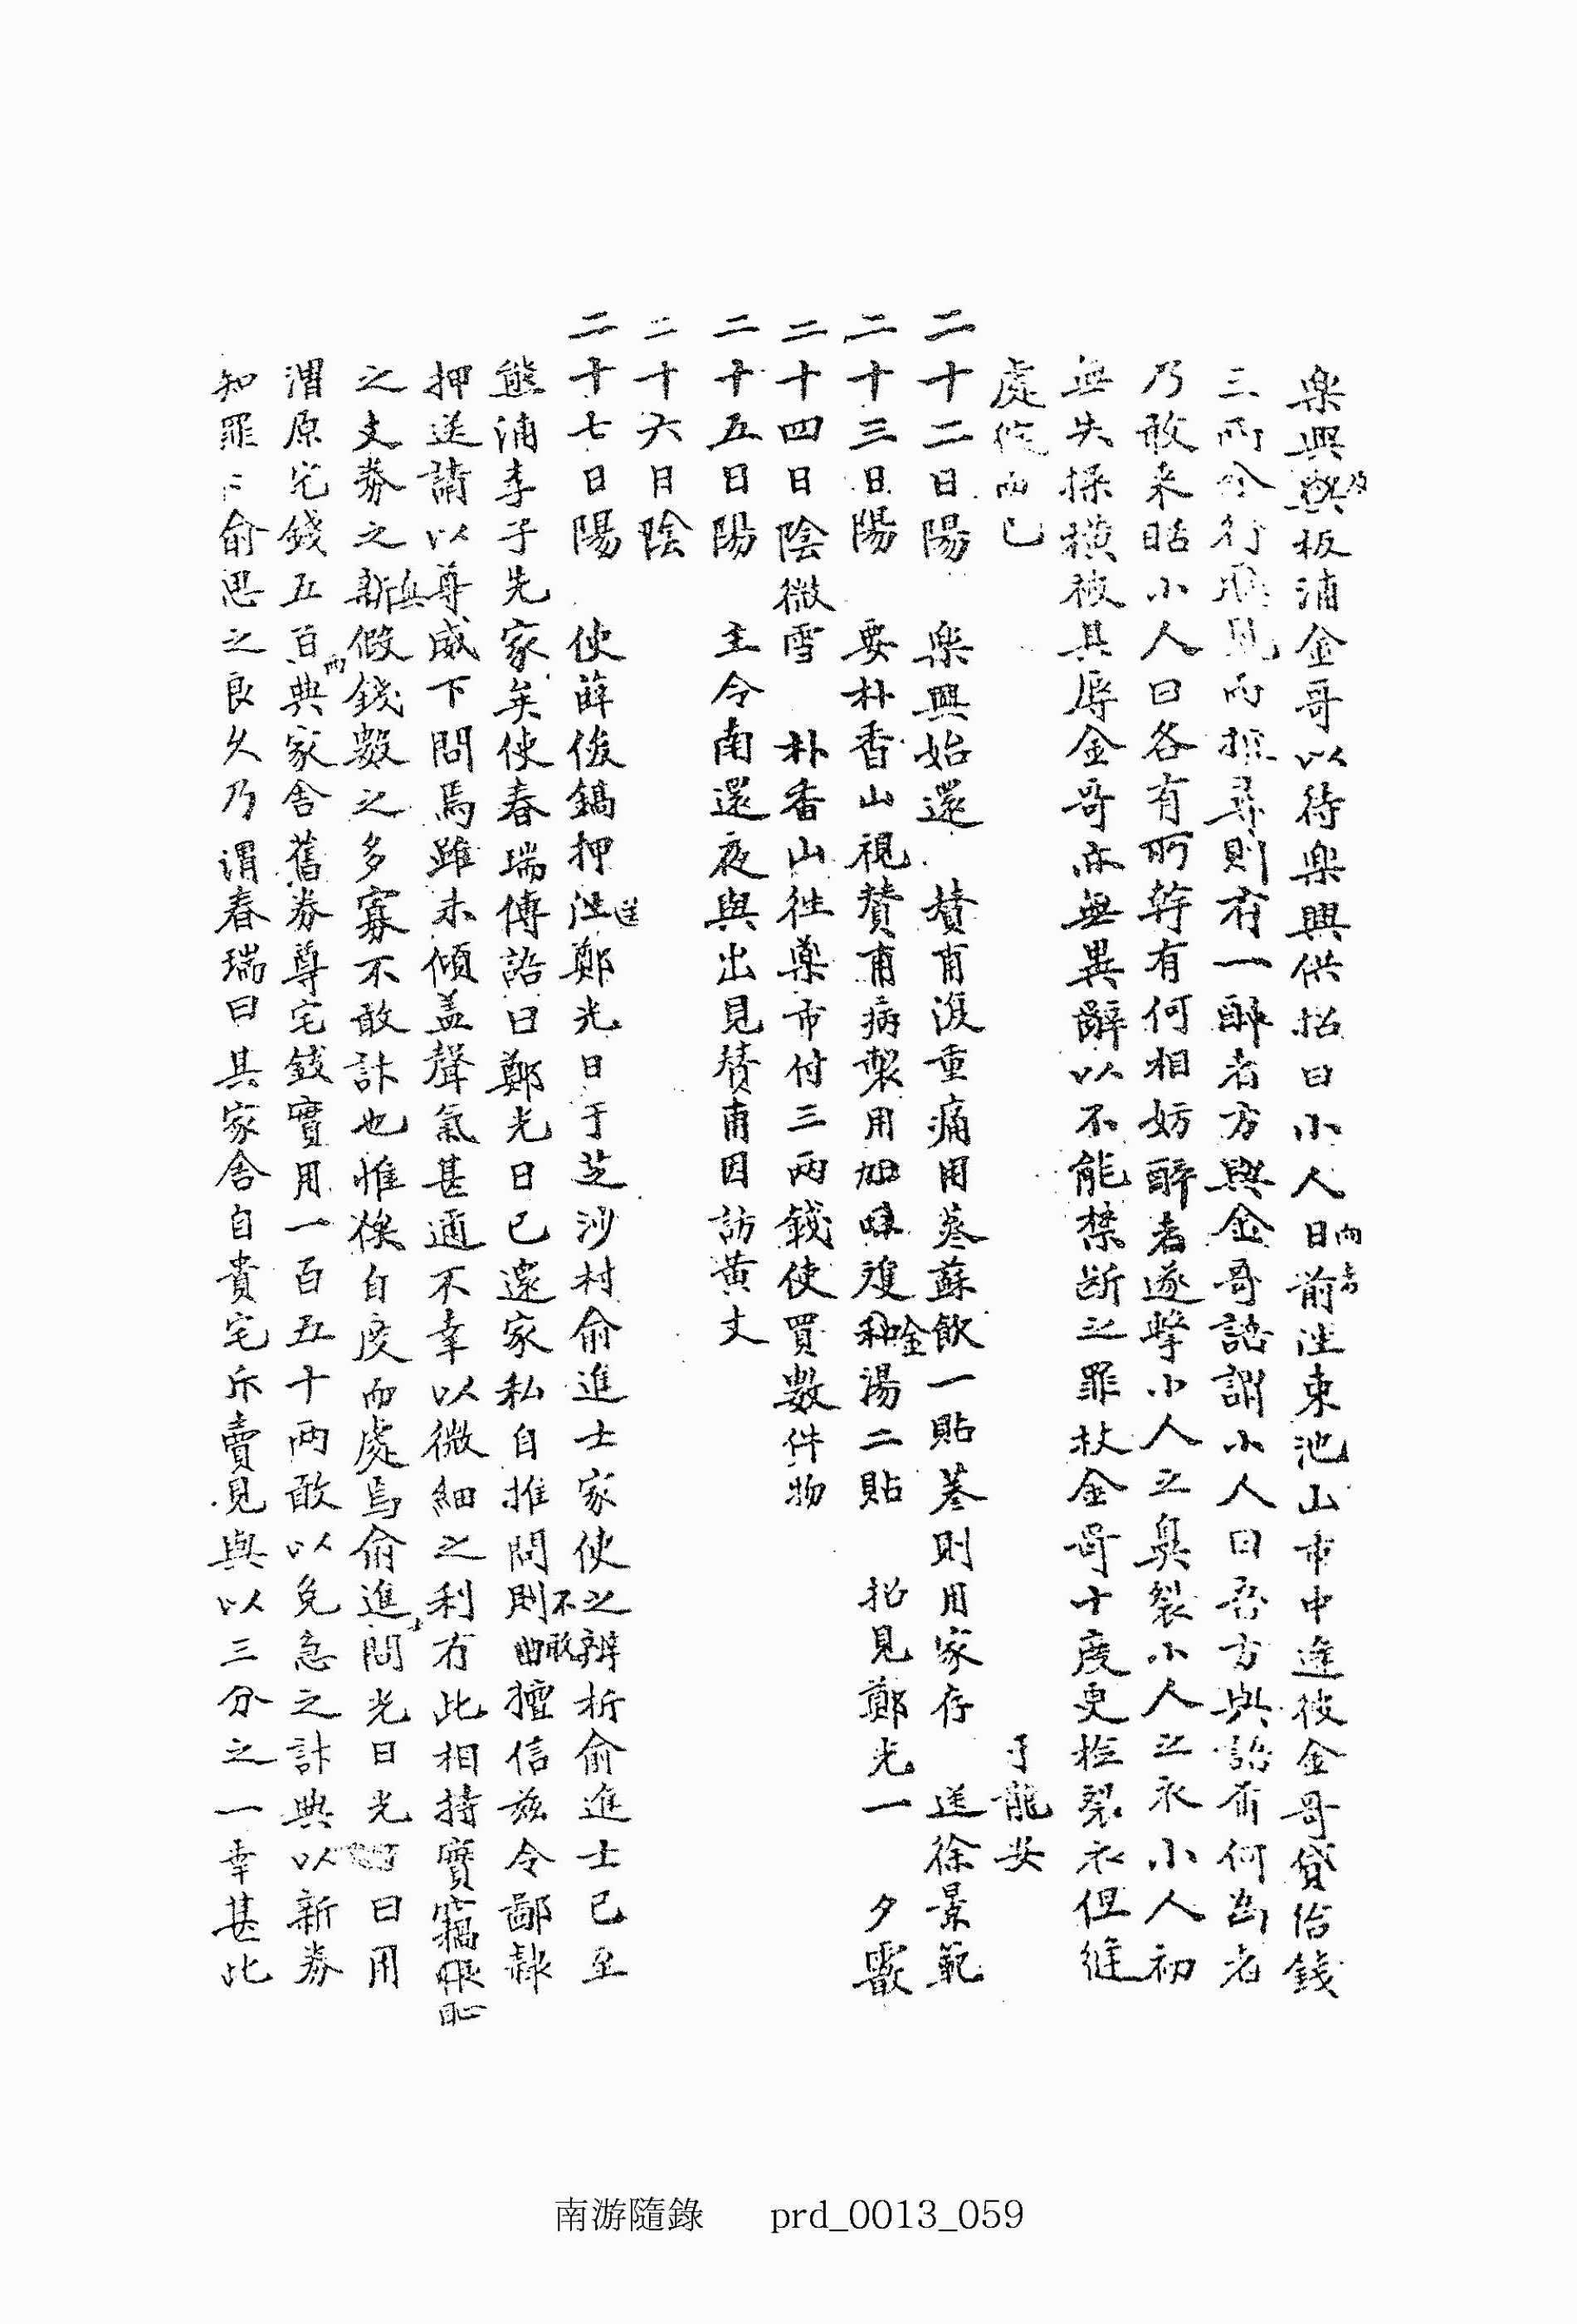 樂興與板浦金哥以待樂興供招曰小人日前徃東池山市中逢彼金哥貸佁錢
三兩今行見而推尋則有一醉者方與金哥語謂小人曰吾方與語有何爲者
乃敢来昵小人曰各有所幹有何相妨醉者遂擊小人之鼻裂小人之衣小人初
無失操橫被其辱金哥亦無異辭以不能禁断之罪杖金哥十度更推裂衣但縫
處從而已 于龍安
二十二日陽 樂興始還 賛甫復重痛用蔘蘇飮一貼蔘則用家存 送徐景範
二十三日陽 要朴香山視賛甫病製用金湯二貼 招見鄭光一 夕
二十四日陰微雪 朴香山徃藥市付三兩錢使買數件物
二十五日陽 主令南還夜與出見賛甫因訪黃丈
二十六日陰
二十七日陽 使薛俊鎬押送鄭光日于芝沙村俞進士家使之辨析俞進士已至
熊浦李子先家矣使春瑞傳語曰鄭光日已還家私自推問則不敢擅信玆令鄙隷
押送請以尊威下問焉雖未傾盖聲氣甚通不幸以微細之利有此相持實竊恨恥
之文券之新與假錢數之多寡不敢計也惟裁自度而處焉俞進士問光日光日曰用
渭原宅錢五百兩典家舍舊券尊宅錢實用一百五十兩敢以免急之計典以新券
知罪〻俞思之良久乃謂春瑞曰其家舍自貴宅斥賣見與以三分之一幸甚比
南游隨錄 prd_0013_059